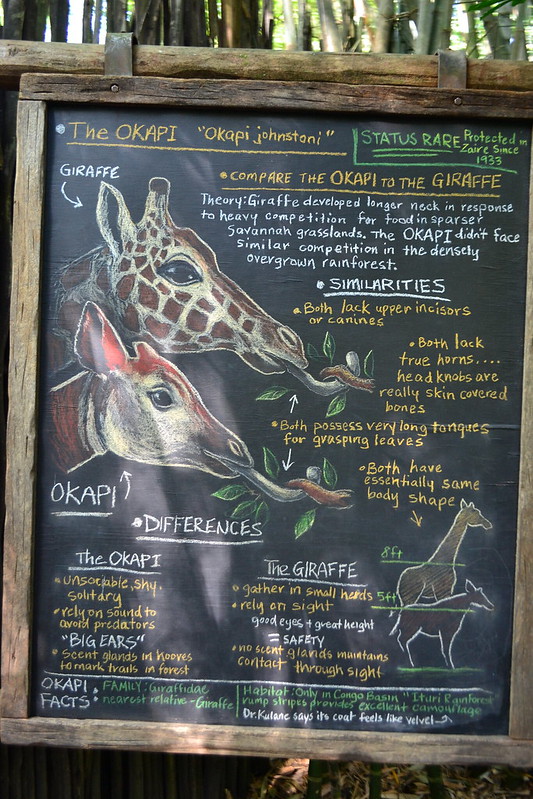 The OKAPI "Okapi johnstoni"
STATUS RARE Protected in
Zaire Since
1933
GIRAFFE
• COMPARE THE OKAPI TO THE GIRAFFE
Theory: Giraffe developed longer neck in response
to heavy competition for food in sparser
Savannah grasslands. The OKAPI didn't face
similar competition in the densely
overgrown rainforest.
• SIMILARITIES
• Both lack upper incisors
or canines
• Both lack
true horns....
head knobs are
really skin covered
bones
• Both possess very long tongues
for grasping leaves
• Both have
essentially same
body shape
OKAPI
8ft
5ft
• DIFFERENCES
The OKAPI
• unsociable, shy,
solitary
• rely on sound to
avoid predators
"BIG EARS"
• Scent glands in hooves
to mark trails in forest
The GIRAFFE
• gather in small herds
• rely on sight
good eyes + great height
= SAFETY
• no scent glands maintains
contact through sight
OKAPI
FACTS:
• FAMILY: Giraffidae
• nearest relative - Giraffe
Habitat: Only in Congo Basin "Ituri Rainforest
rump stripes provides excellent camouflage
Dr. Kulane says its coat feels like velvet